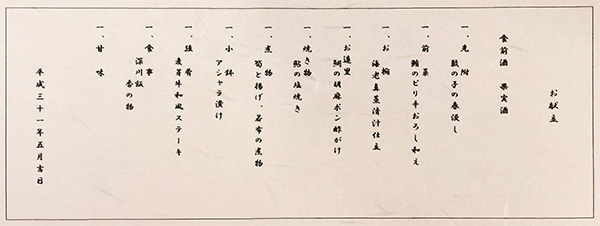 お献立
食前酒 果実酒
一、先附
鼓の子の春優し
一、前菜
鰆のピリ辛おろし和え
一、お椀
海老真薯清汁仕立
一、お造里
鯛の胡麻ポン酢がけ
一、焼き物
鮎の塩焼き
一、煮物
筍と揚げ、若布の煮物
一、小鉢
アシャラ漬け
一、強肴
麦芽牛和風ステーキ
一、食事
深川飯
香の物
一、甘味
平成三十一年五月吉日